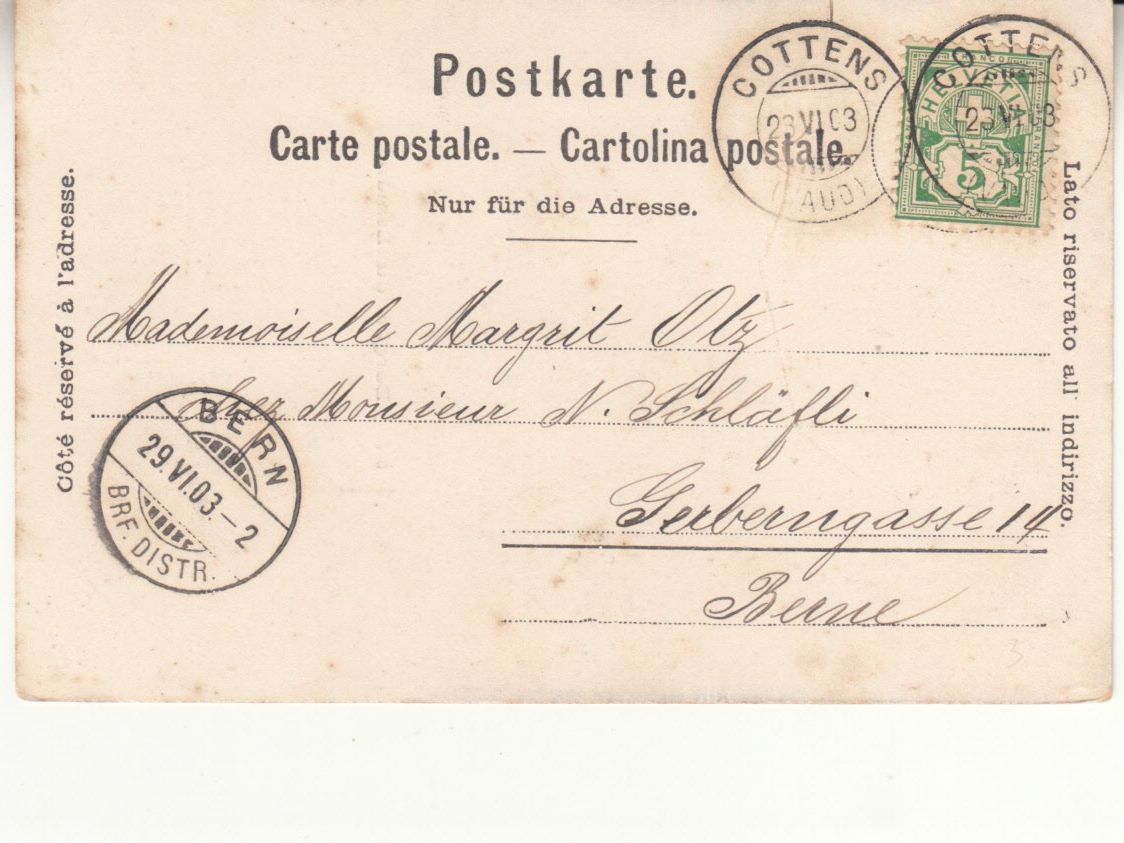 Postkarte.
Carte postale. — Cartolina postale.
Nur für die Adresse.
COTTENS
23 VI 03
(VAUD)
COTTENS
23 VI 03
HELVETIA
FRANCO
5
Côté réservé à l'adresse.
Lato riservato all' indirizzo.
Mademoiselle Margrit Otz
chez Monsieur N. Schläfli
Gerberngasse 14
Berne
BERN
29.VI.03.–2
BRF. DISTR.